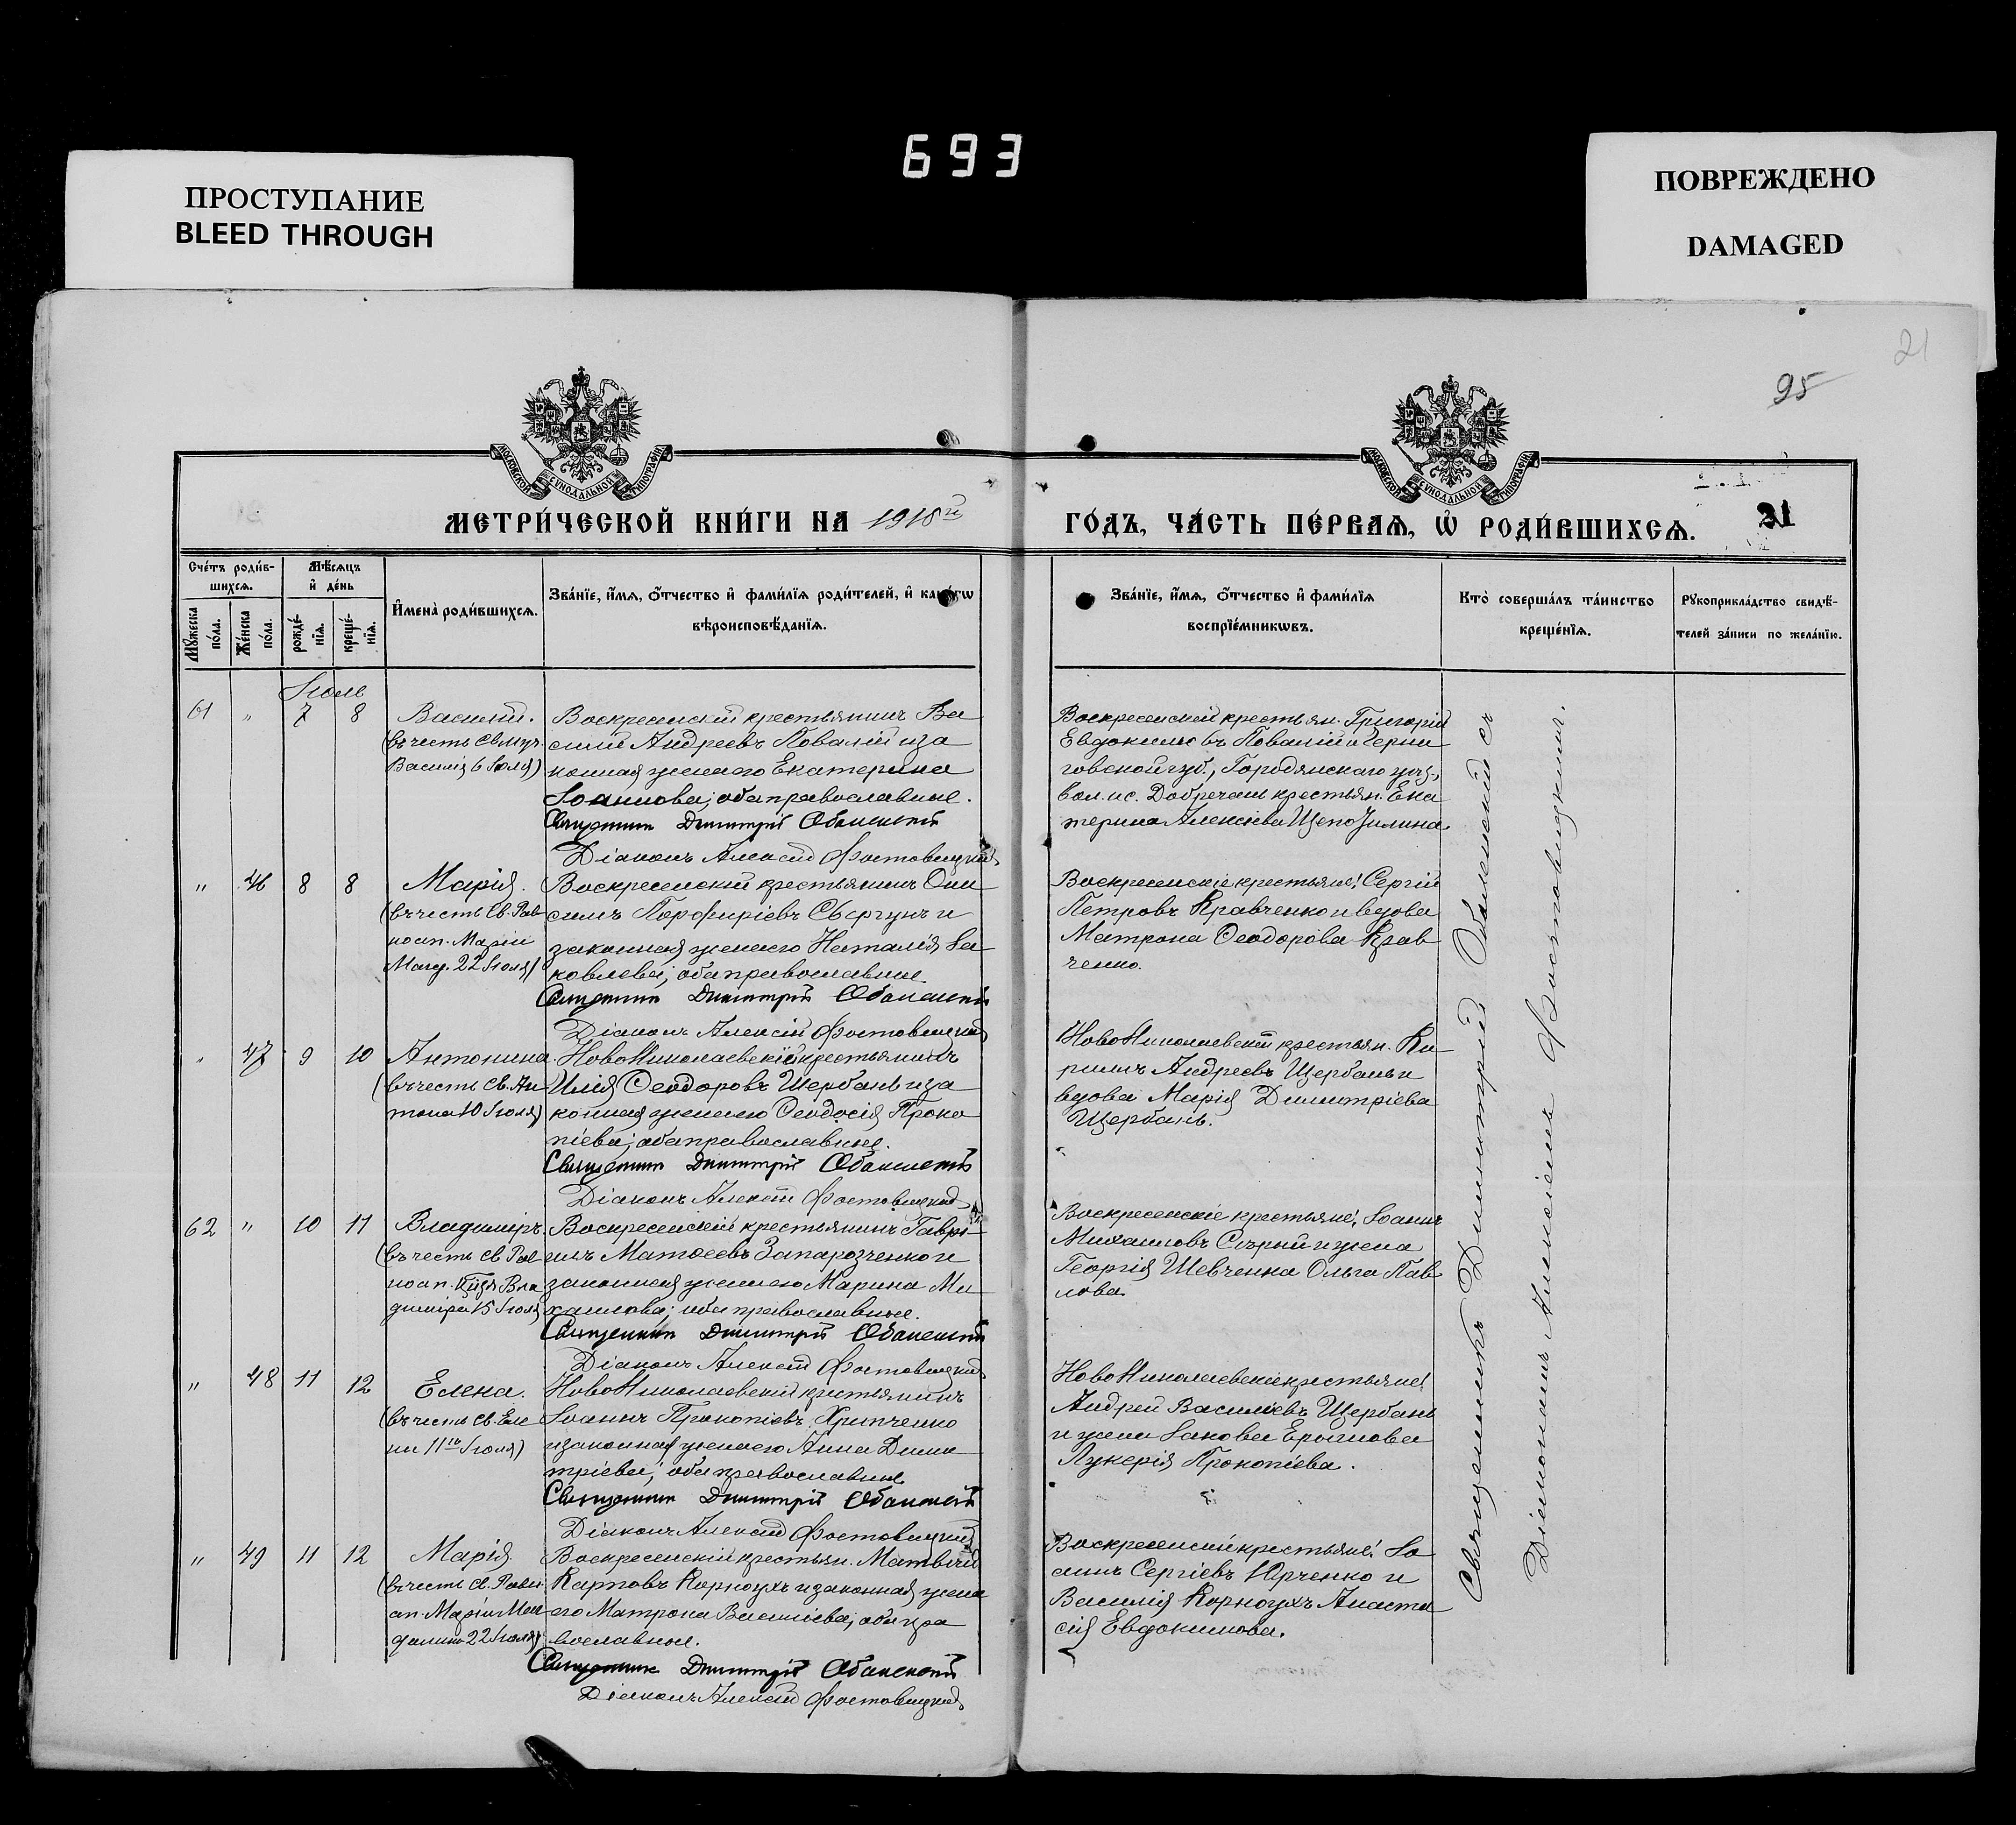 693
ПРОСТУПАНИЕ
BLEED THROUGH
ПОВРЕЖДЕНО
DAMAGED
21
95
МОСКОВСКОЙ СѴНОДАЛЬНОЙ ТИПОГРАФІИ
МОСКОВСКОЙ СѴНОДАЛЬНОЙ ТИПОГРАФІИ
МЕТРИ́ЧЕСКОЙ КНИ́ГИ НА 1918й
ГО́ДЪ, ЧА́СТЬ ПЕ́РВАѦ, Ѡ҆ РОДИ́ВШИХСѦ.
21
Сче́тъ роди́в-
шихсѧ.
Мꙋ́жеска
по́ла.
Же́нска
по́ла.
Мѣ́сѧцъ
и҆ де́нь
рожде́-
нїѧ.
креще́-
нїѧ.
И҆мена̀ роди́вшихсѧ.
Зва́нїе, и҆́мѧ, ѻ҆́тчество и҆ фами́лїѧ роди́телей, и҆ како́гѡ
вѣроисповѣ́данїѧ.
Зва́нїе, и҆́мѧ, ѻ҆́тчество и҆ фами́лїѧ
воспрїе́мникѡвъ.
Кто̀ соверша́лъ та́инство
креще́нїѧ.
Рꙋкоприкла́дство свидѣ́-
телей за́писи по жела́нїю.
Іюль
61 " 7 8
Василій.
(въ честь св. муч.
Василія 6 Іюля)
Воскресенскій крестьянинъ Ва
силій Андреевъ Ковалій и за
конная жена его Екатерина
Іоаннова; оба православные.
Священник Димитрій Оболенскій
Діаконъ Алексій Фостовицкій
Воскресенскій крестьян. Григорій
Евдокимовъ Ковалій и Черни
говской губ., Городянскаго уѣз.,
вол. и с. Добречань крестьян. Ека
терина Алексѣева
" 46 8 8
Марія.
(въ честь св. Рав
ноап. Маріи
Магд. 22 Іюля)
Воскресенскій крестьянинъ Они
симъ Порфиріевъ Свергунъ и
законная жена его Наталія Іа
ковлева; оба православные.
Священник Димитрій Оболенскій
Діаконъ Алексій Фостовицкій
Воскресенскіе крестьяне: Сергій
Петровъ Кравченко и вдова
Матрона Ѳеодорова Крав
ченко.
" 47 9 10
Антонина
(въ честь св. Ан
тона 10 Іюля)
НовоНиколаевскій крестьянинъ
Илія Ѳеодоровъ Щербань и за
конная жена его Ѳеодосія Проко
піева; оба православные.
Священник Димитрій Оболенскій
Діаконъ Алексій Фостовицкій
НовоНиколаевскій крестьян. Ки
риллъ Андреевъ Щербань и
вдова Марія Димитріева
Щербань.
62 " 10 11
Владиміръ.
(въ честь св. Рав
ноап. Кнзя Вла
диміра 15 Іюля)
Воскресенскій крестьянинъ Гаврі-
илъ Матѳеевъ Запарозченко и
законная жена его Марина Ми
хаилова; оба православные.
Священник Димитрій Оболенскій
Діаконъ Алексій Фостовицкій
Воскресенскіе крестьяне: Іоаннъ
Михаиловъ Сѣрый и жена
Георгія Шевченка Ольга Пав
лова.
" 48 11 12
Елена.
(въ честь св. Еле
ны 11го Іюля)
НовоНиколаевскій крестьянинъ
Іоаннъ Прокопіевъ Хрипченко
и законная жена его Анна Дими
тріева; оба православные
Священник Димитрій Оболенскій
Діаконъ Алексій Фостовицкій
НовоНиколаевскіе крестьяне:
Андрей Василіевъ Щербань
и жена Іакова
Лукерія Прокопіева.
" 49 11 12
Марія.
(въ честь св. Равн
ап. Маріи Маг
далины 22 Іюля)
Воскресенскій крестьян. Матвѣй
Карповъ Корноухъ и законная жена
его Матрона Василіева; оба пра
вославные.
Священник Димитрій Оболенскій
Діаконъ Алексій Фостовицкій
Воскресенскіе крестьяне: Іо
аннъ Сергіевъ Юрченко и
Василія Корноухъ Анаста
сія Евдокимова.
Священникъ Димитрій Оболенскій съ
Діакономъ Алексіемъ Фостовицкимъ.